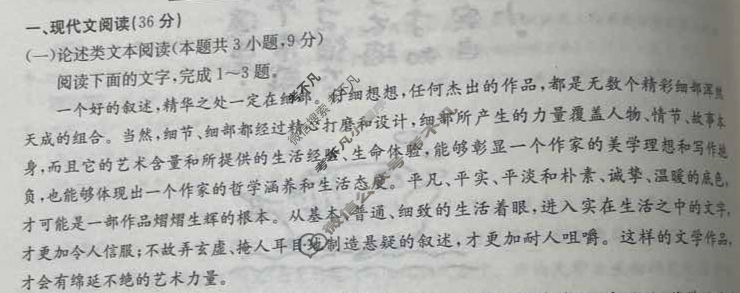 一、现代文阅读(36分)
(一)论述类文本阅读(本题共3小题,9分)
阅读下面的文字,完成1~3题。
一个好的叙述,精华之处一定在细部。仔细想想,任何杰出的作品,都是无数个精彩细部浑然
天成的组合。当然,细节、细部都经过精心打磨和设计,细部所产生的力量覆盖人物、情节、故事本
身,而且它的艺术含量和所提供的生活经验、生命体验,能够彰显一个作家的美学理想和写作抱
负,也能够体现出一个作家的哲学涵养和生活态度。平凡、平实、平淡和朴素、诚挚、温暖的底色,
才可能是一部作品熠熠生辉的根本。从基本、普通、细致的生活着眼,进入实在生活之中的文字,
才更加令人信服;不故弄玄虚、掩人耳目地制造悬疑的叙述,才更加耐人咀嚼。这样的文学作品,
才会有绵延不绝的艺术力量。